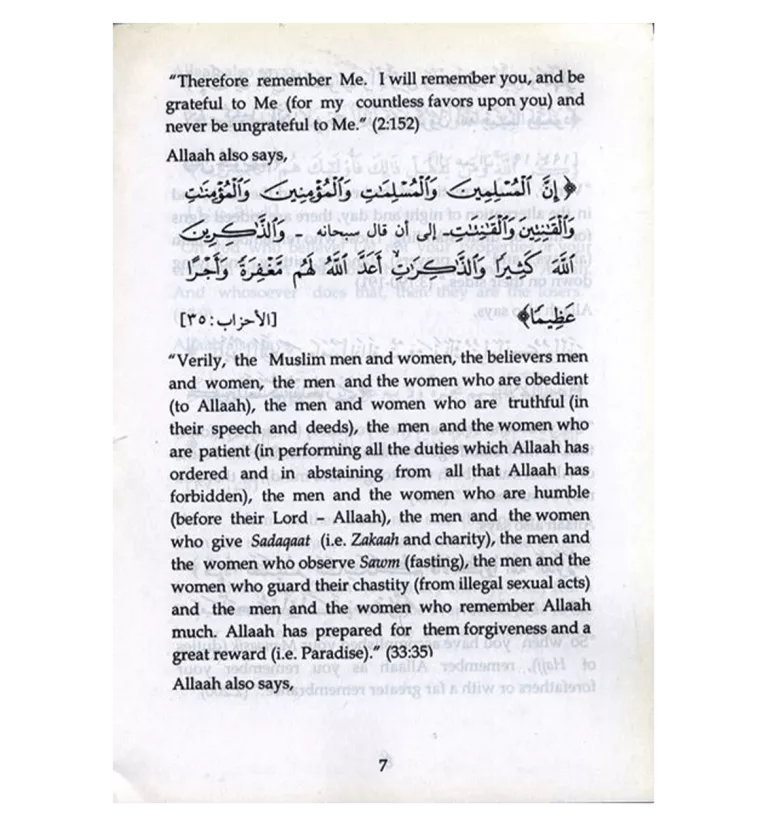 “Therefore remember Me. I will remember you, and be
grateful to Me (for my countless favors upon you) and
never be ungrateful to Me.” (2:152)
Allaah also says,
﴿إِنَّ ٱلْمُسْلِمِينَ وَٱلْمُسْلِمَٰتِ وَٱلْمُؤْمِنِينَ وَٱلْمُؤْمِنَٰتِ
وَٱلْقَٰنِتِينَ وَٱلْقَٰنِتَٰتِ- إلى أن قال سبحانه - وَٱلذَّٰكِرِينَ
ٱللَّهَ كَثِيرًا وَٱلذَّٰكِرَٰتِ أَعَدَّ ٱللَّهُ لَهُم مَّغْفِرَةً وَأَجْرًا
عَظِيمًا﴾ [الأحزاب: ٣٥]
“Verily, the Muslim men and women, the believers men
and women, the men and the women who are obedient
(to Allaah), the men and women who are truthful (in
their speech and deeds), the men and the women who
are patient (in performing all the duties which Allaah has
ordered and in abstaining from all that Allaah has
forbidden), the men and the women who are humble
(before their Lord – Allaah), the men and the women
who give Sadaqaat (i.e. Zakaah and charity), the men and
the women who observe Sawm (fasting), the men and the
women who guard their chastity (from illegal sexual acts)
and the men and the women who remember Allaah
much. Allaah has prepared for them forgiveness and a
great reward (i.e. Paradise).” (33:35)
Allaah also says,
7